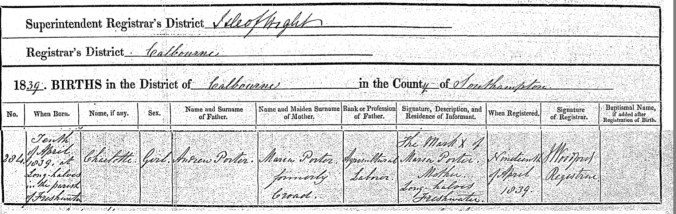 Superintendent Registrar's District Isle of Wight
Registrar's District Calbourne
1839. BIRTHS in the District of Calbourne in the County of Southampton
No. When Born. Name, if any. Sex. Name and Surname of Father. Name and Maiden Surname of Mother. Rank or Profession of Father. Signature, Description, and Residence of Informant. When Registered. Signature of Registrar. Baptismal Name, if added after Registration of Birth.
284 Tenth of April 1839. at Long-halves in the parish of Freshwater
Charlotte.
Girl.
Andrew Porter.
Maria Porter formerly Croad.
Agricultural Labourer.
The Mark X of Maria Porter. Mother. Long-halves Freshwater.
Nineteenth of April 1839.
Registrar